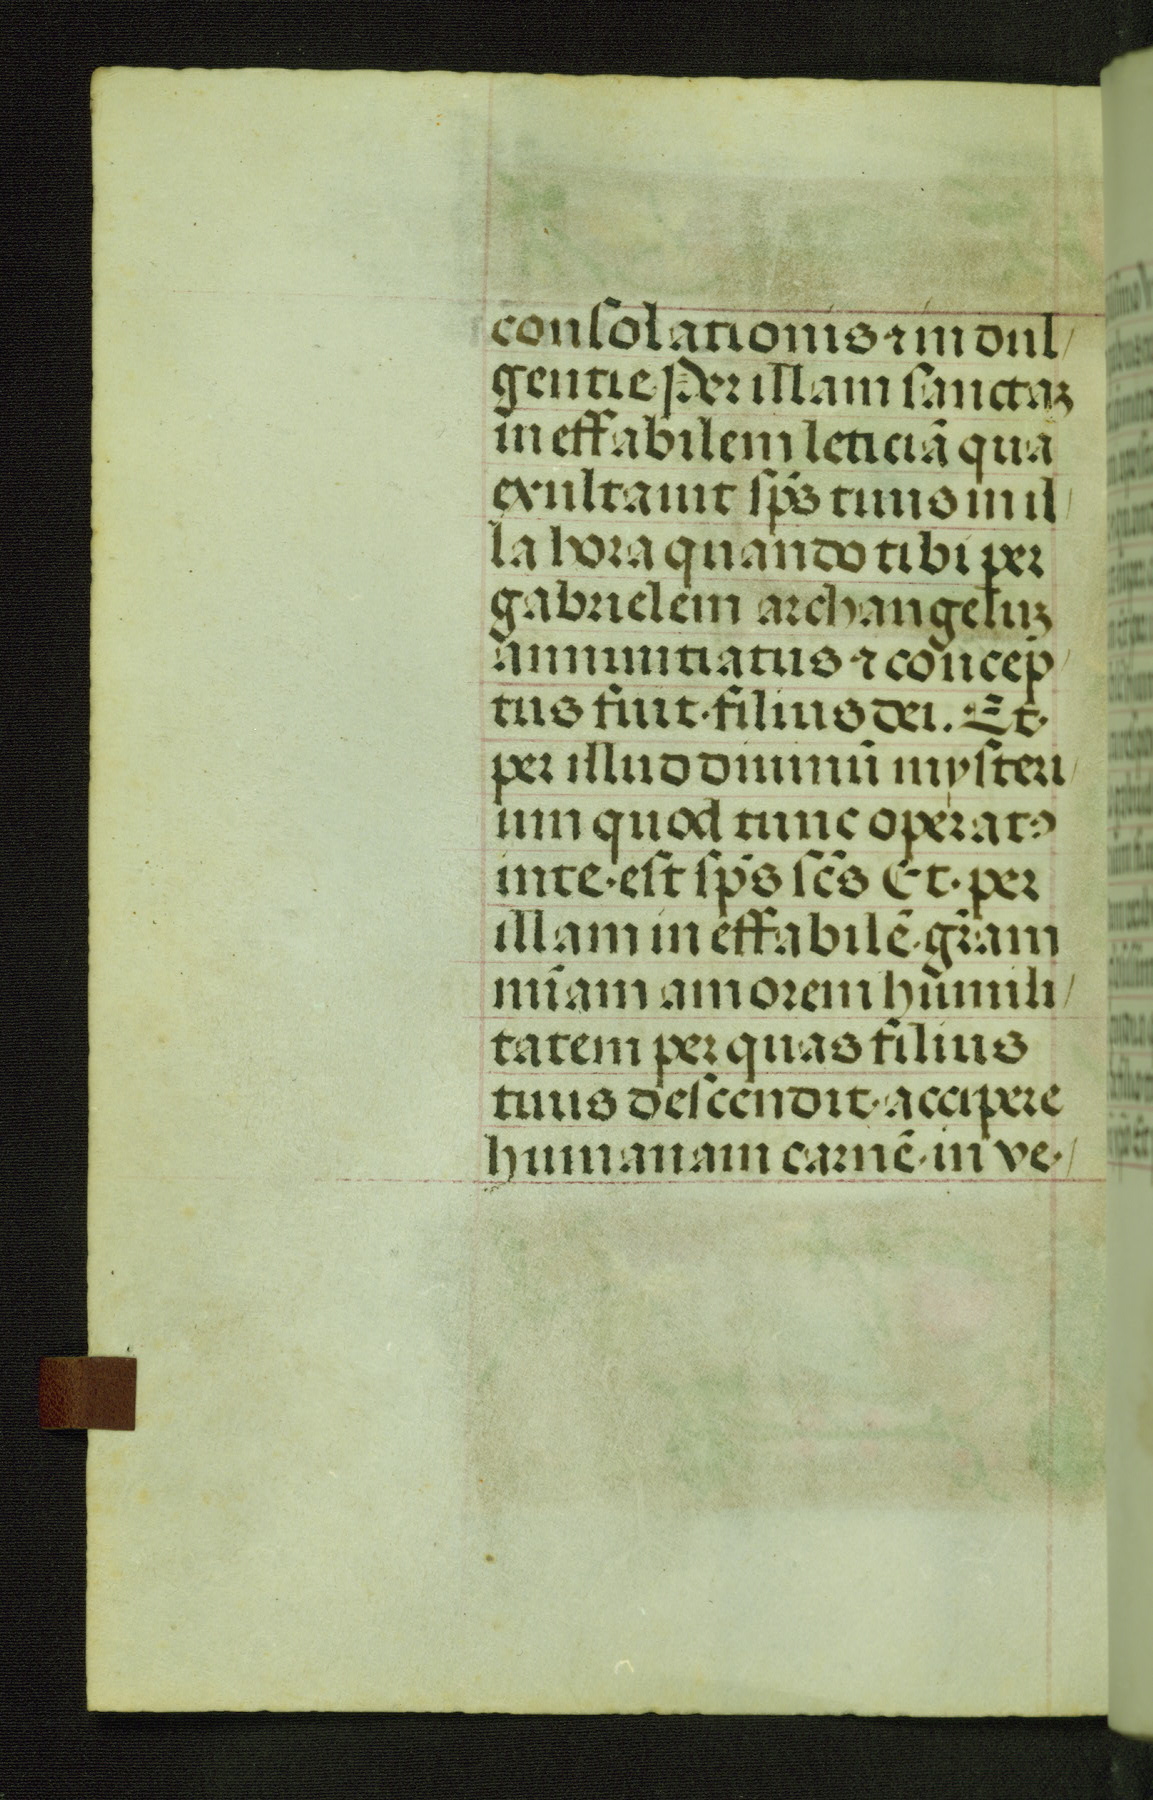 consolationis ⁊ indul/
gentie. Per illam sanctaꝫ
ineffabilem leticiā qua
exultauit sp̄s tuus in il/
la hora quando tibi per
gabrielem archangeluꝫ
annunciatus ⁊ concep/
tus fuit. filius dei. Et.
per illud diuinū mysteri/
um quod tunc operatꝰ
inte. est sp̄s sc̄s Et. per
illam ineffabilē. gr̄am
mīam amorem humili/
tatem per quas filius
tuus descendit. accipere
humanam carnē. in ve./